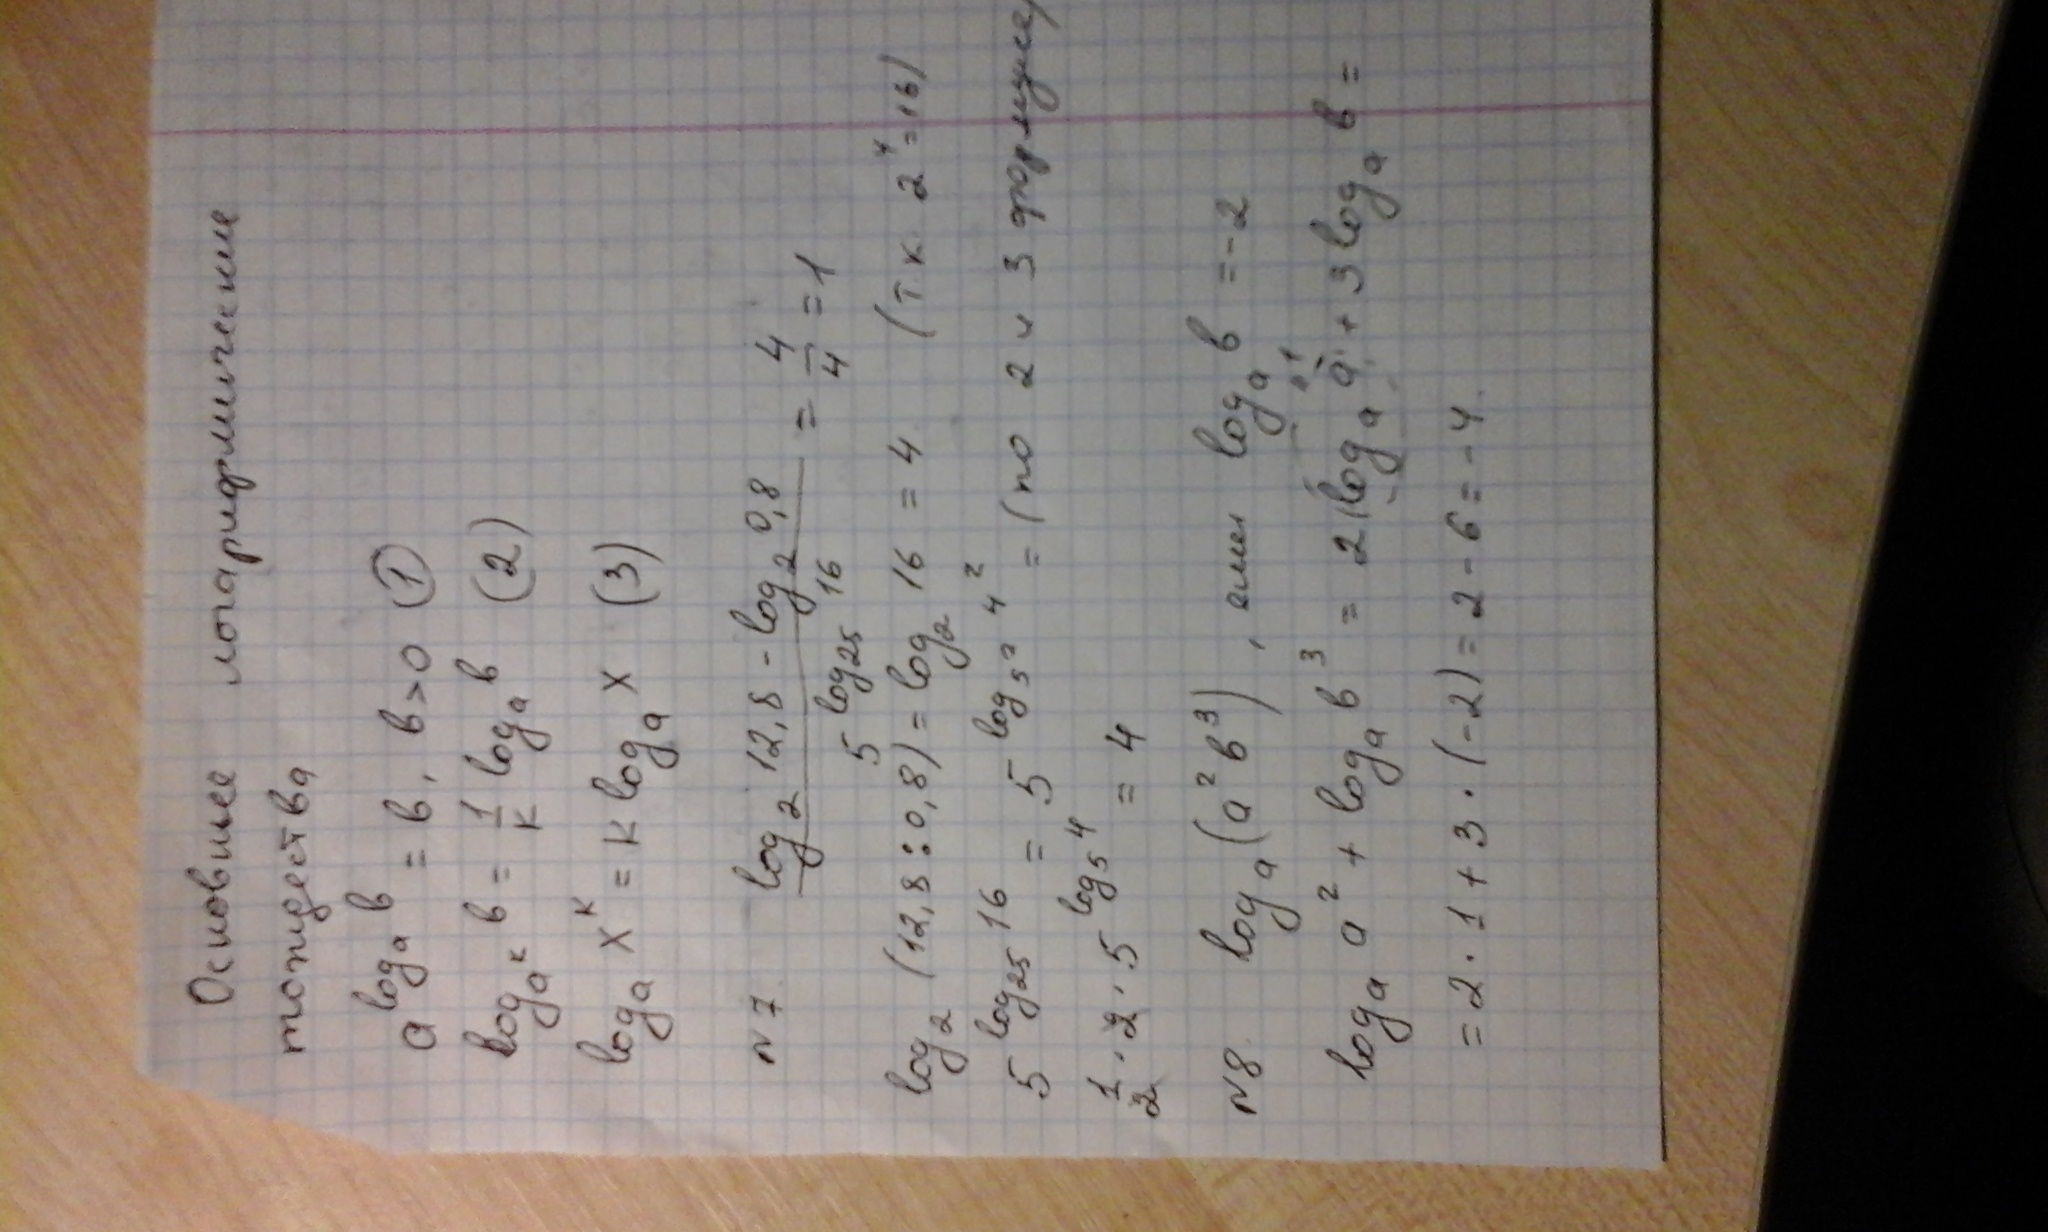 Основные логарифмические
тождества
a^(log_a b) = b, b>0 (1)
log_(a^k) b = 1/k log_a b (2)
log_a x^k = k log_a x (3)
N7. (log_2 12,8 - log_2 0,8) / (5^(log_25 16)) = 4/4 = 1
log_2 (12,8 : 0,8) = log_2 16 = 4 (т.к. 2^4 = 16)
5^(log_25 16) = 5^(log_(5^2) 4^2) = (по 2 и 3 формуле)
1/2 · 2 · 5^(log_5 4) = 4
N8. log_a (a^2 b^3), если log_a b = -2
log_a a^2 + log_a b^3 = 2 log_a a + 3 log_a b =
= 2 · 1 + 3 · (-2) = 2 - 6 = -4.